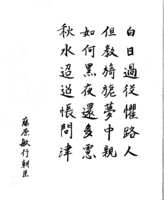 白日過從懼路人
但教猗旎夢中親
如何黑夜還多慮
秋水迢迢悵問津
藤原敏行朝臣